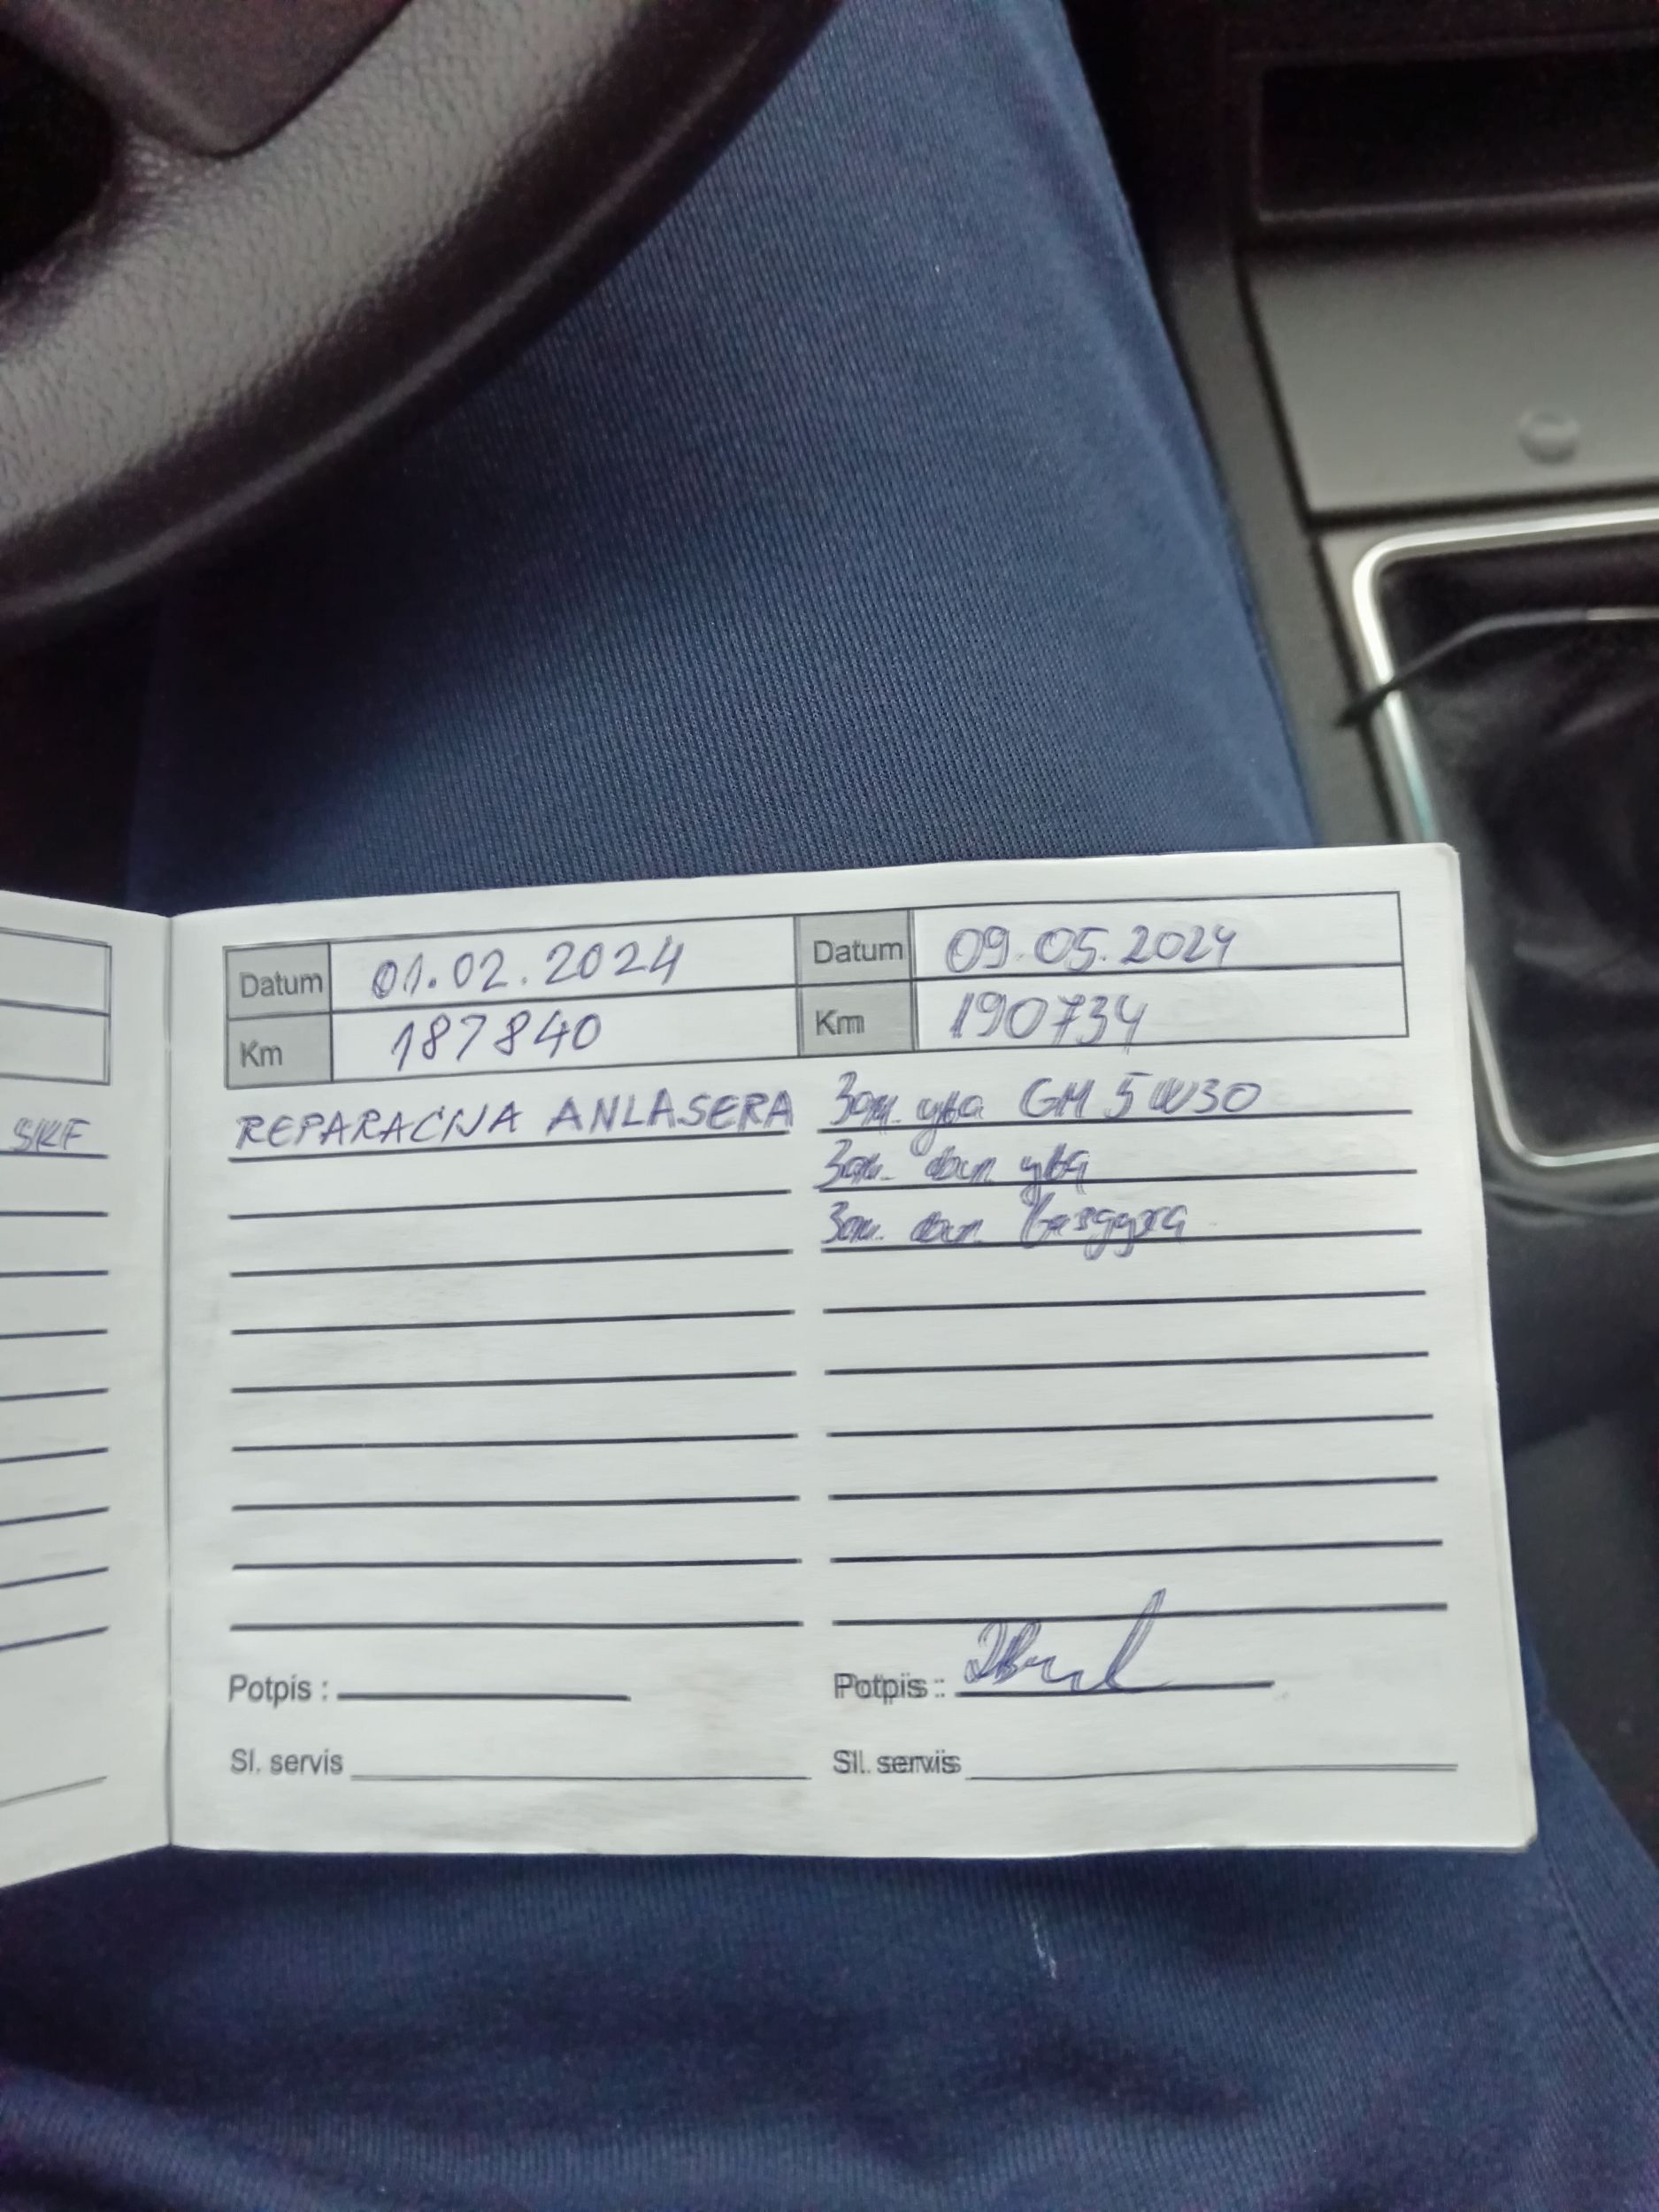 SKF
Datum 01.02.2024
Km 187840
REPARACIJA ANLASERA
Potpis :
Sl. servis
Datum 09.05.2024
Km 190734
Зам. уља GM 5W30
Зам. фил. уља
Зам. фил. ваздуха
Potpis :
Sl. servis